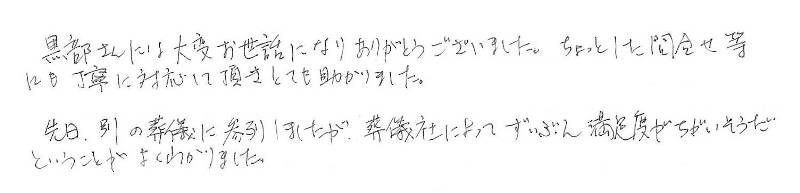 黒部さんには大変お世話になりありがとうございました。ちょっとした問合せ等
にも丁寧に対応して頂きとても助かりました。
先日、別の葬儀に参列しましたが、葬儀社によってずいぶん満足度がちがいそうだ
ということがよくわかりました。